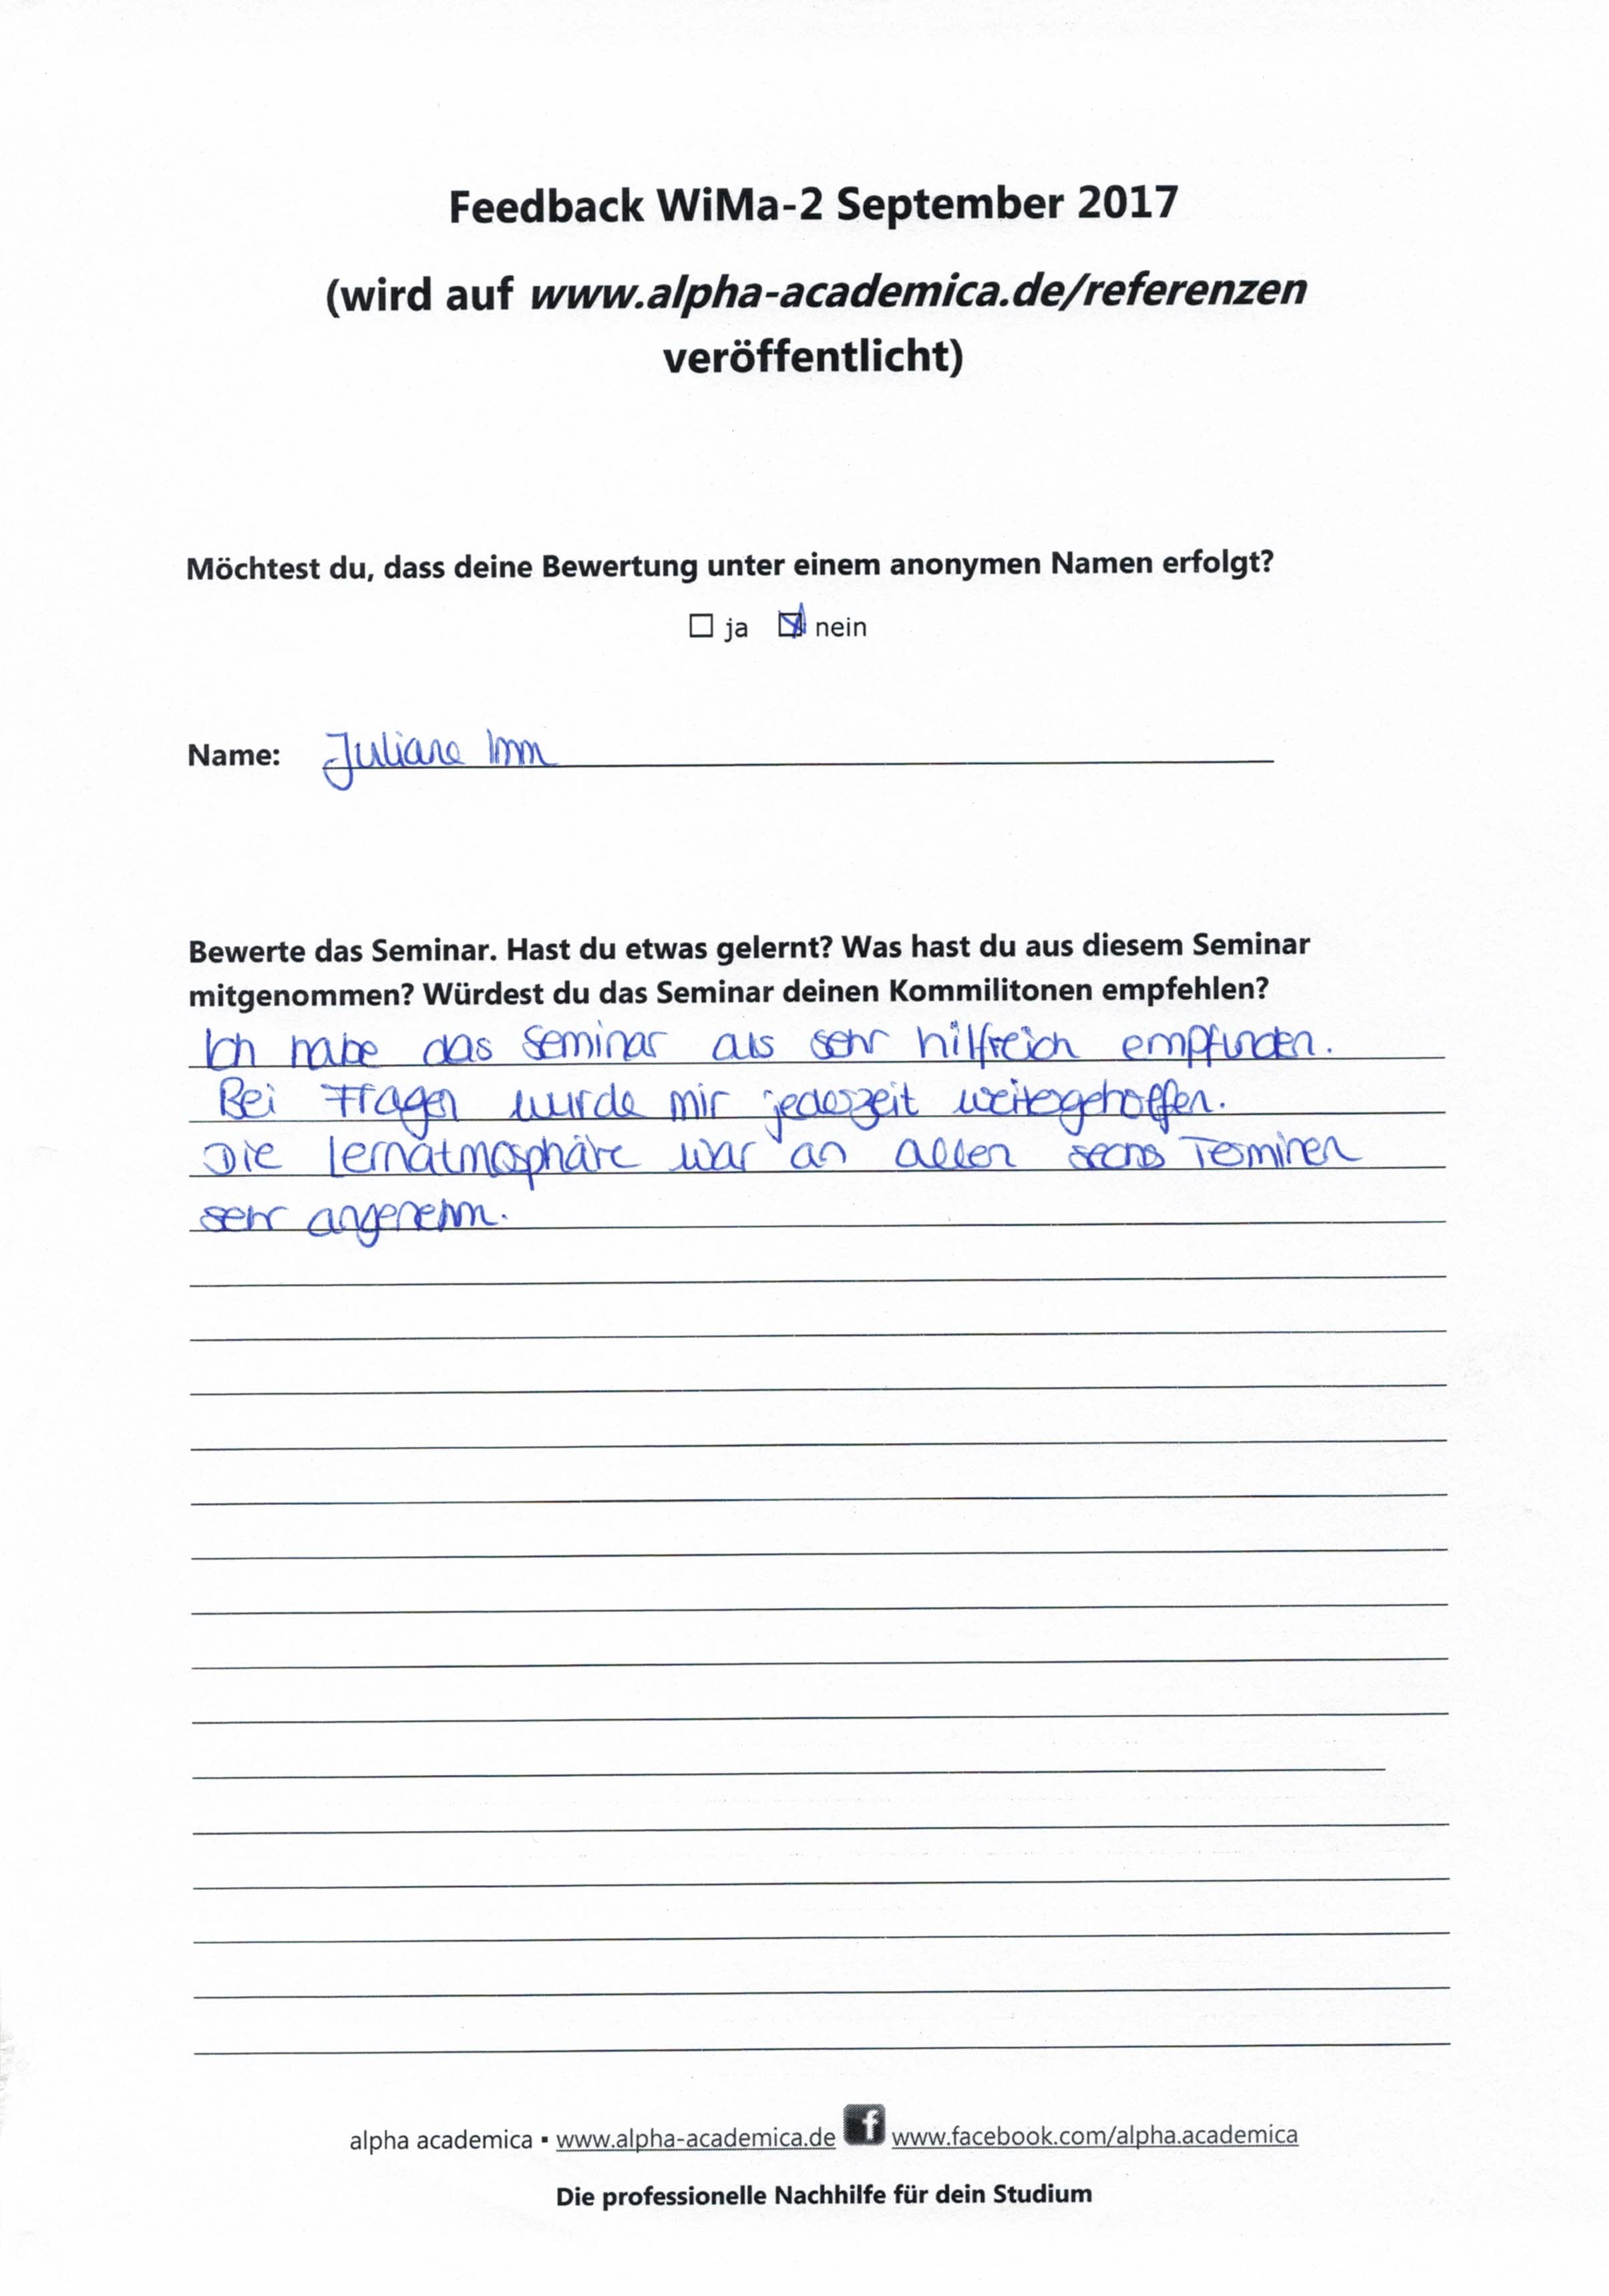 Feedback WiMa-2 September 2017
(wird auf www.alpha-academica.de/referenzen
veröffentlicht)
Möchtest du, dass deine Bewertung unter einem anonymen Namen erfolgt?
☐ ja ☒ nein
Name: Juliane Imm
Bewerte das Seminar. Hast du etwas gelernt? Was hast du aus diesem Seminar
mitgenommen? Würdest du das Seminar deinen Kommilitonen empfehlen?
Ich habe das Seminar als sehr hilfreich empfunden.
Bei Fragen wurde mir jederzeit weitergeholfen.
Die Lernatmosphäre war an allen sechs Terminen
sehr angenehm.
alpha academica ▪ www.alpha-academica.de f www.facebook.com/alpha.academica
Die professionelle Nachhilfe für dein Studium